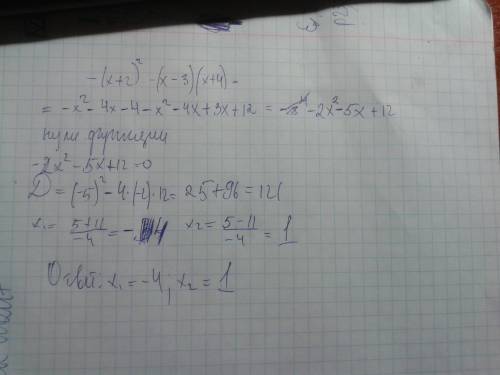 -(x+2)² -(x-3)(x+4) -
= -x² - 4x - 4 - x² - 4x + 3x + 12 = -2x² - 5x + 12
нули функции
-2x² - 5x + 12 = 0
D = (-5)² - 4·(-2)·12 = 25 + 96 = 121
x₁ = (5+11)/(-4) = -4 x₂ = (5-11)/(-4) = 1
Ответ: x₁ = -4; x₂ = 1